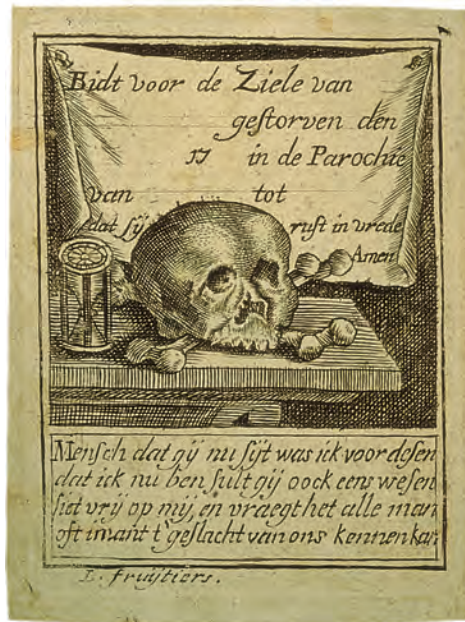 Bidt voor de Ziele van
gestorven den
17 in de Parochie
van tot
dat sij rust in vrede
Amen
Mensch dat gij nu sijt was ick voor desen
dat ick nu ben sult gij oock eens wesen
siet vrij op mij, en vraegt het alle man
oft imant t'geslacht van ons kennen kan
L. fruijtiers.